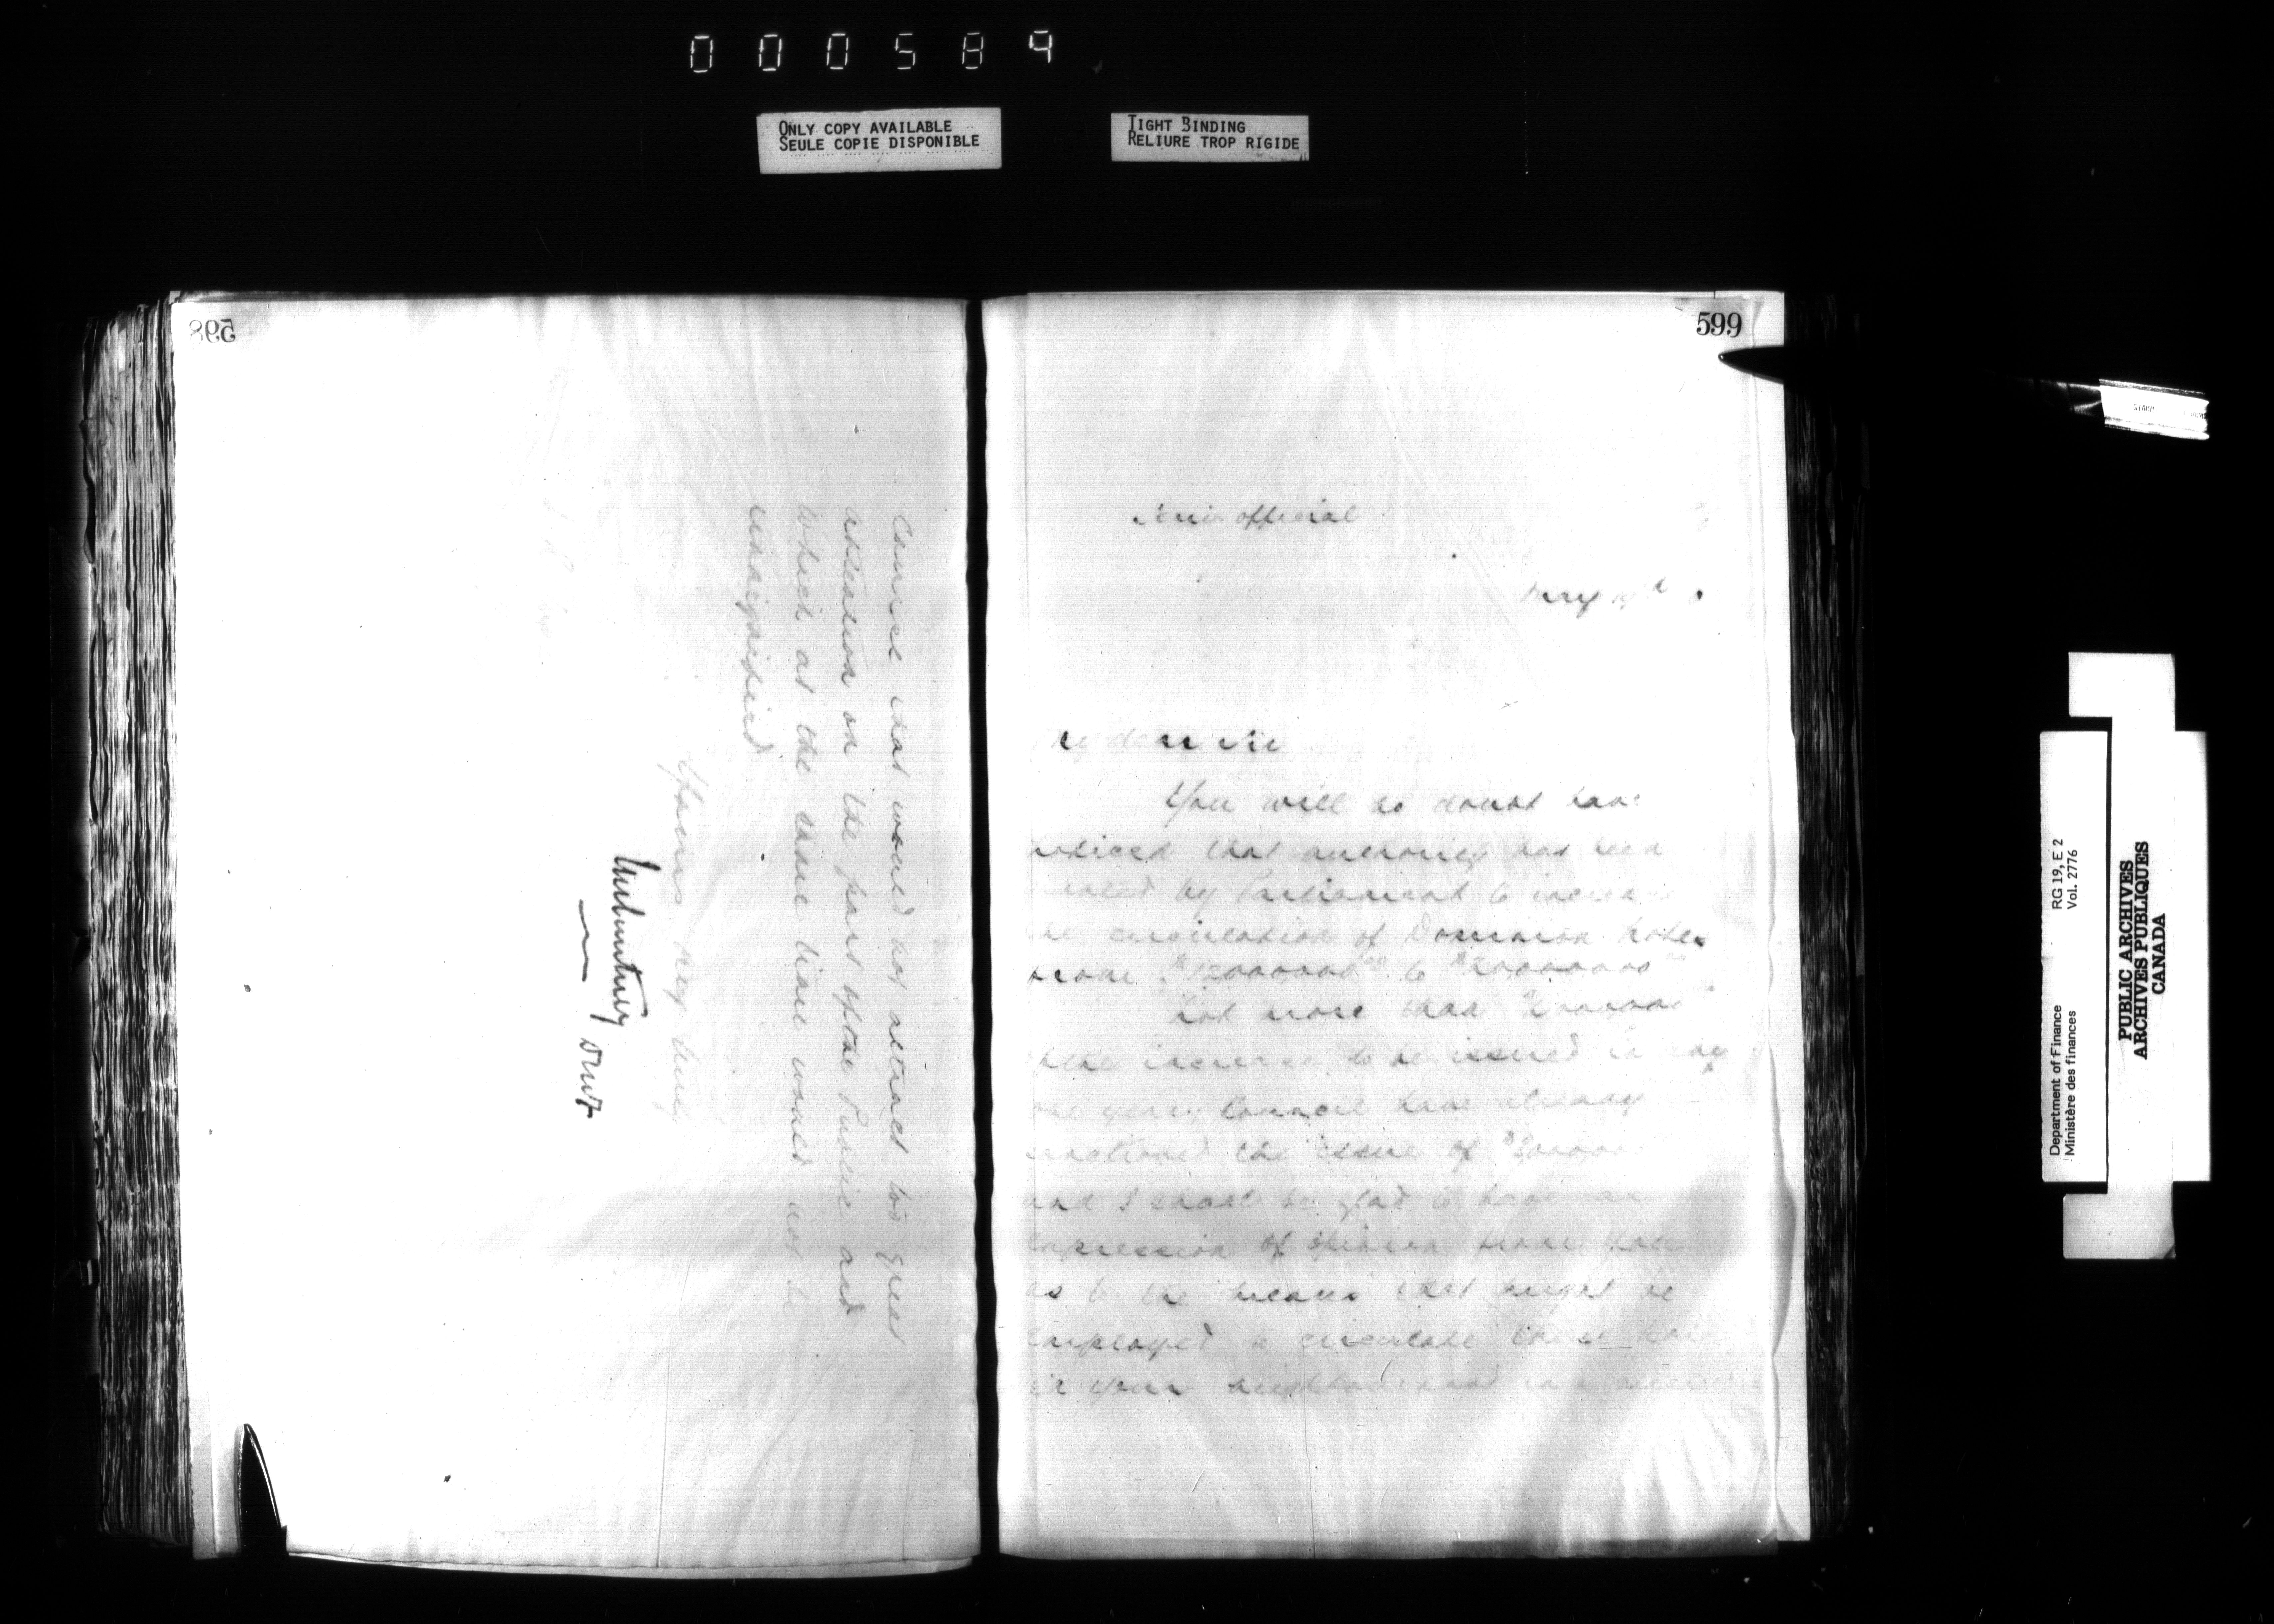 000589
ONLY COPY AVAILABLE
SEULE COPIE DISPONIBLE
TIGHT BINDING
RELIURE TROP RIGIDE
598
Council that would not attract too great
attention on the part of the Public and
which at the same time would not be
undignified
Yours very truly
DMF
599
Semi official
My dear Sir
You will no doubt have
noticed that authority has been
by Parliament to increase
the circulation of Dominion Notes
from $12000000 00 to $20000000
Not more than
of the increase to be issued in any
one year, Council have already
sanctioned the issue of
and I shall be glad to have an
expression of opinion from you
as to the means that might be
employed to circulate these notes
in your neighbourhood in a
RG 19, E 2
Vol. 2776
Department of Finance
Ministère des finances
PUBLIC ARCHIVES
ARCHIVES PUBLIQUES
CANADA